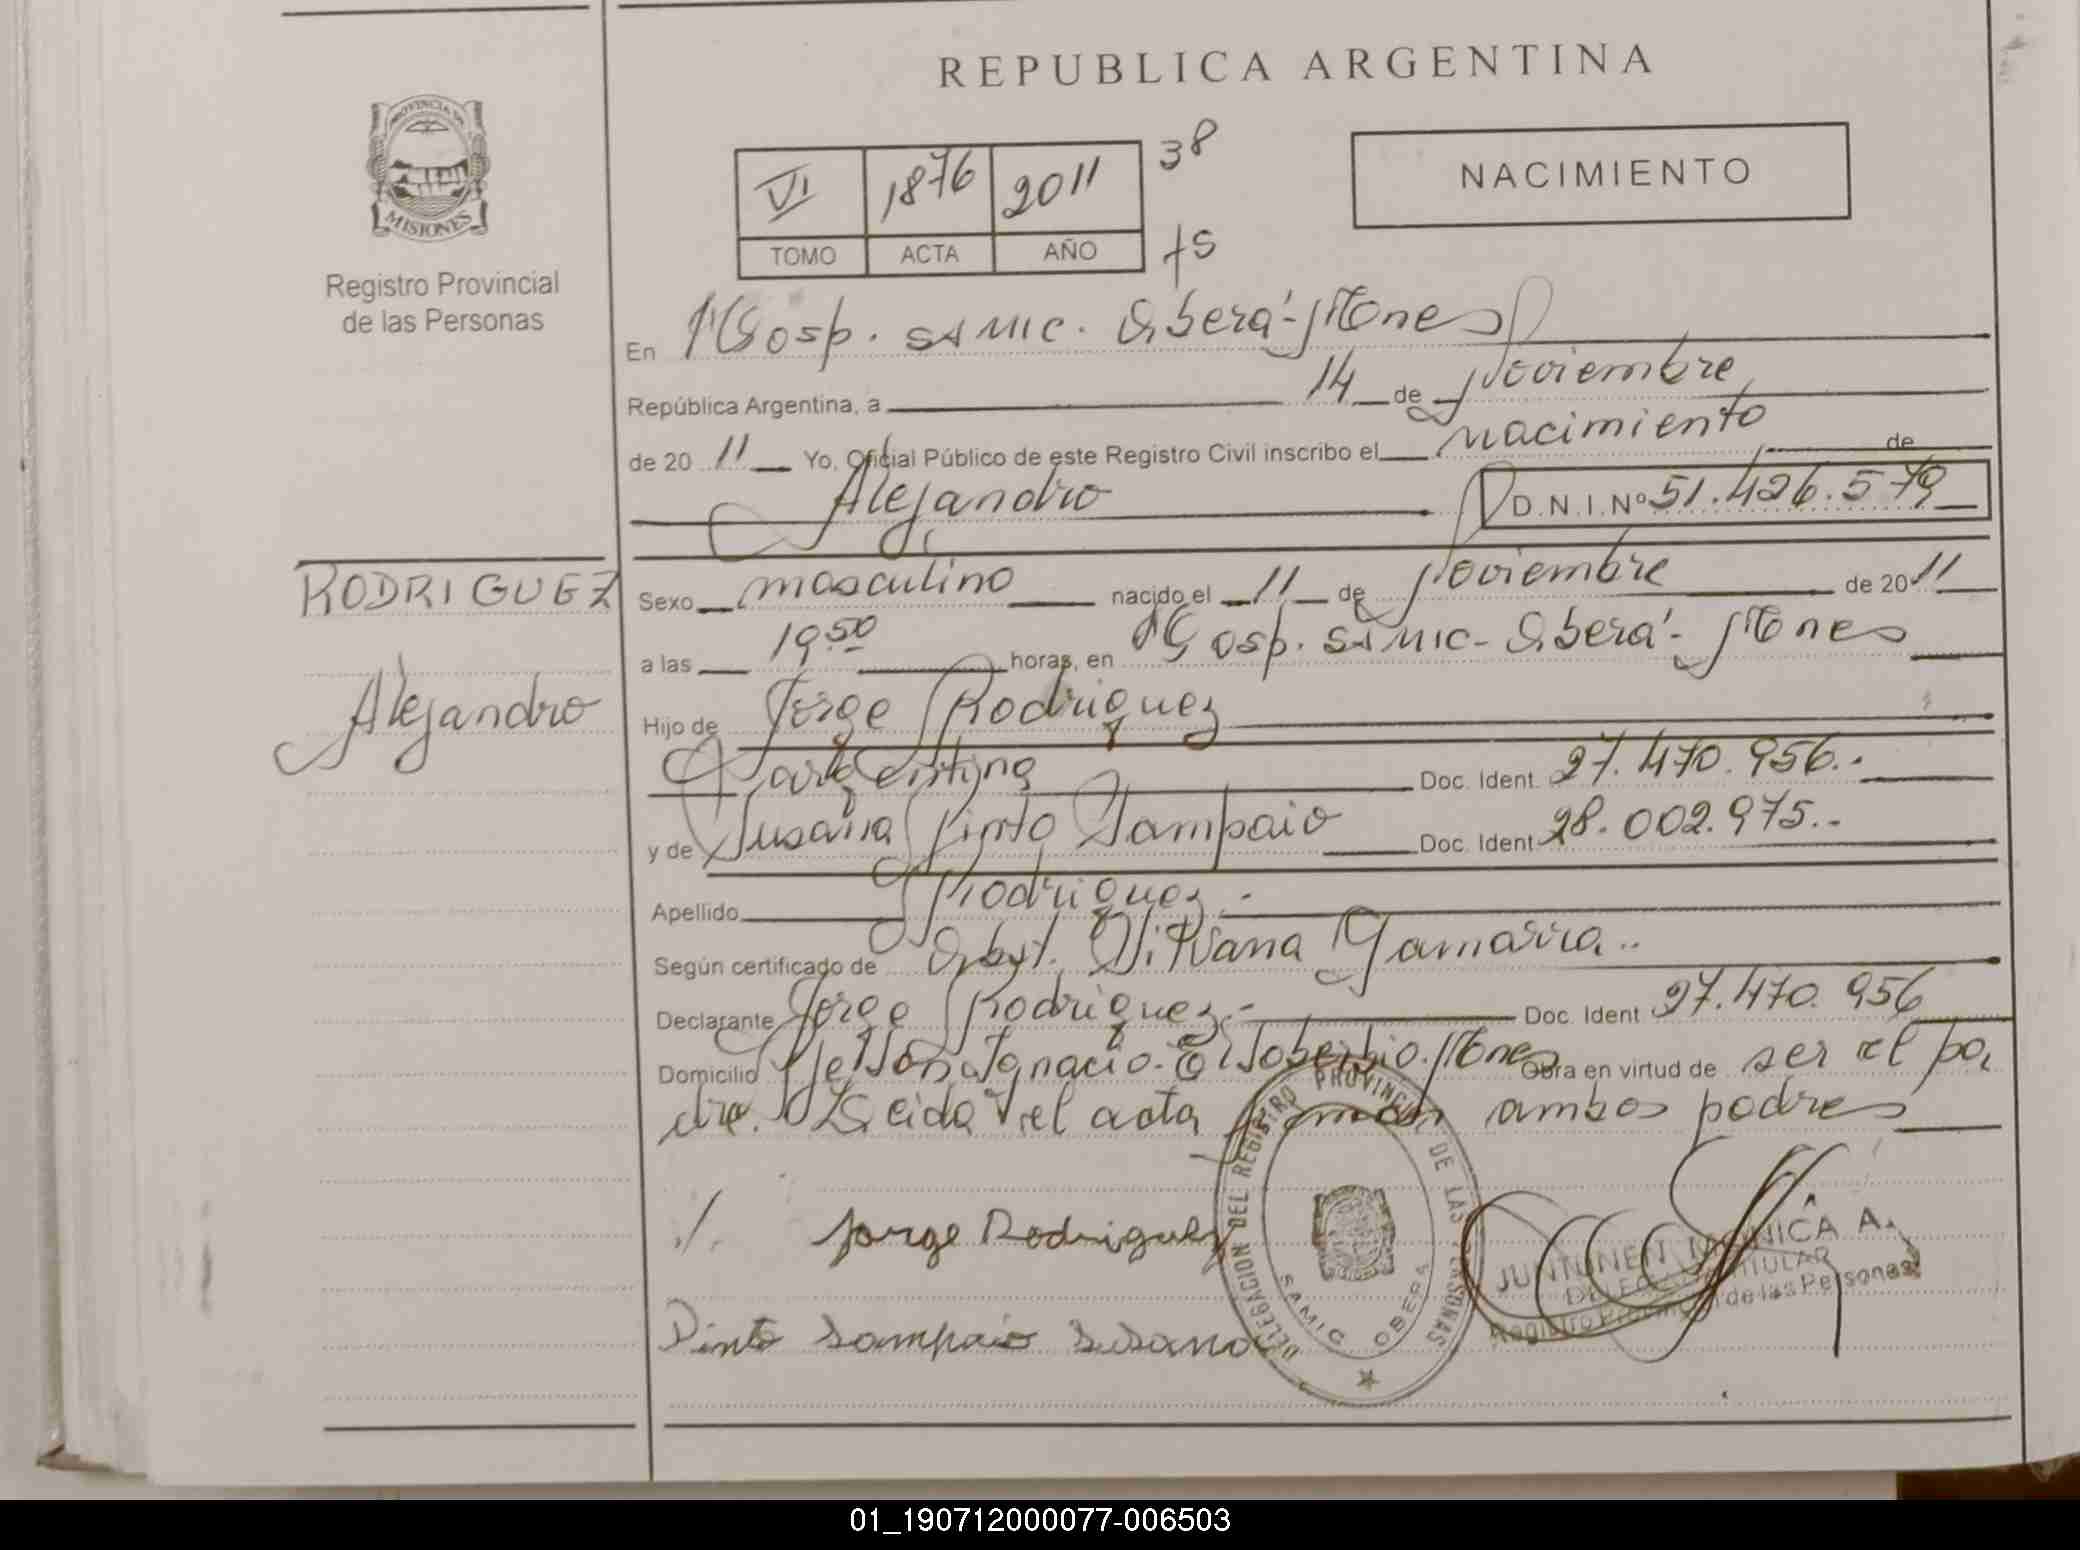 REPUBLICA ARGENTINA
PROVINCIA DE
MISIONES
Registro Provincial
de las Personas
VI 1876 2011 38
TOMO ACTA AÑO
fs
NACIMIENTO
En Hosp. SAMIC. Oberá - Mnes
República Argentina, a 14 de Noviembre
de 2011 Yo, Oficial Público de este Registro Civil inscribo el nacimiento de
Alejandro D.N.I. Nº 51.426.579
RODRIGUEZ
Alejandro
Sexo masculino nacido el 11 de Noviembre de 2011
a las 19.50 horas, en Hosp. SAMIC - Oberá - Mnes
Hijo de Jorge Rodriguez
argentina Doc. Ident. 27.470.956.-
y de Susana Pinto Sampaio Doc. Ident 28.002.975.-
Apellido Rodriguez.-
Según certificado de Obst. Gamarra.-
Declarante Jorge Rodriguez.- Doc. Ident 27.470.956
Domicilio Ignacio. El Soberbio. Mnes Obra en virtud de ser el pa
dre. Leida el acta firman ambos padres
./. Jorge Rodriguez
Pinto Sampaio Susana
DELEGACION DEL REGISTRO PROVINCIAL DE LAS PERSONAS
SAMIC OBERA
JUNTUNEN MONICA A.
DELEGADA TITULAR
Registro Provincial de las Personas
01_190712000077-006503